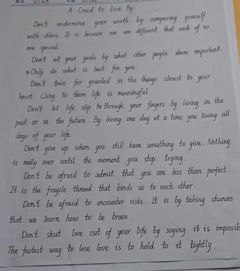 A Creed to Live By
Don't undermine your worth by comparing yourself
with others. It is because we are different that each of us
are special.
Don't set your goals by what other people deem important.
Only do what is best for you.
Don't take for granted in the things closest to your
heart. Cling to them life is meaningful.
Don't let life slip through your fingers by living in the
past or in the future. By living one day at a time you living all
days of your life.
Don't give up when you still have something to give. Nothing
is really over until the moment you stop trying.
Don't be afraid to admit that you are less than perfect.
It is the fragile thread that binds us to each other.
Don't be afraid to encounter risks. It is by taking chances
that we learn how to be brave.
Don't shut love out of your life by saying it is impossib
The fastest way to lose love is to hold to it tightly.